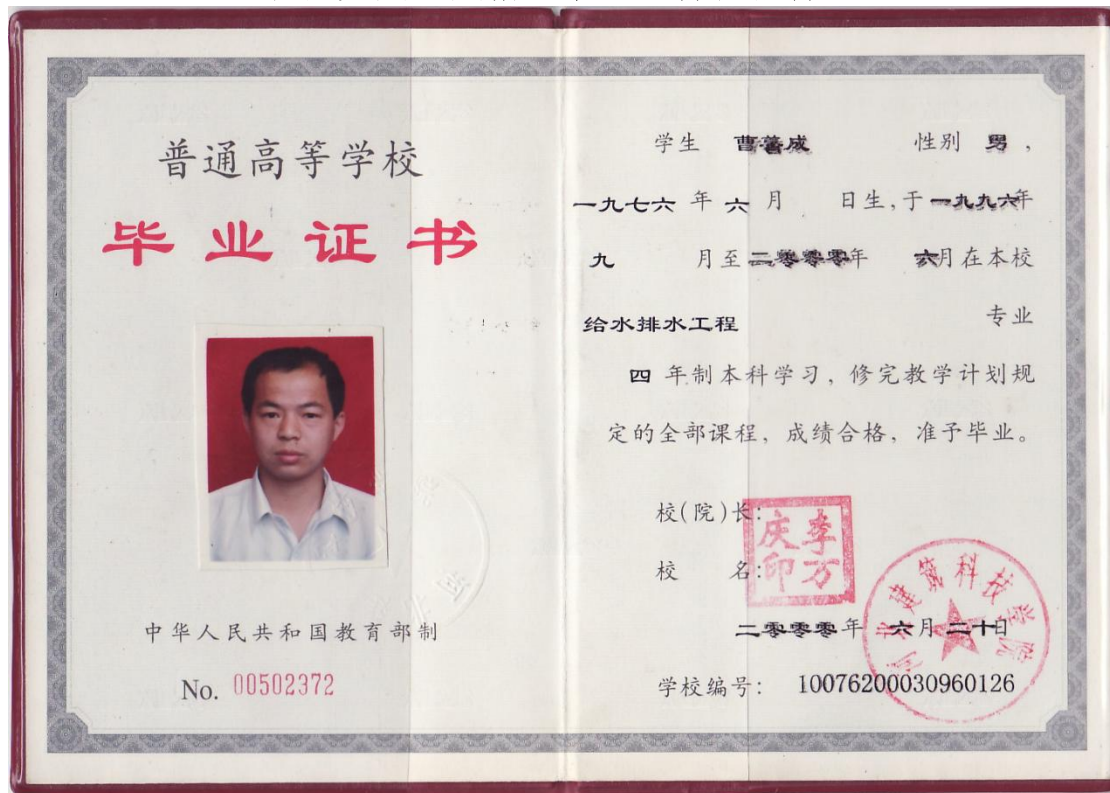 普通高等学校
毕业证书
中华人民共和国教育部制
No. 00502372
学生 曹善成 性别 男,
一九七六 年 六 月 日生,于一九九六年
九 月至二零零零年 六月在本校
给水排水工程 专业
四 年制本科学习,修完教学计划规
定的全部课程,成绩合格,准予毕业。
校(院)长:
李万庆印
校 名:
河北建筑科技学院
二零零零年 六月二十日
学校编号: 10076200030960126